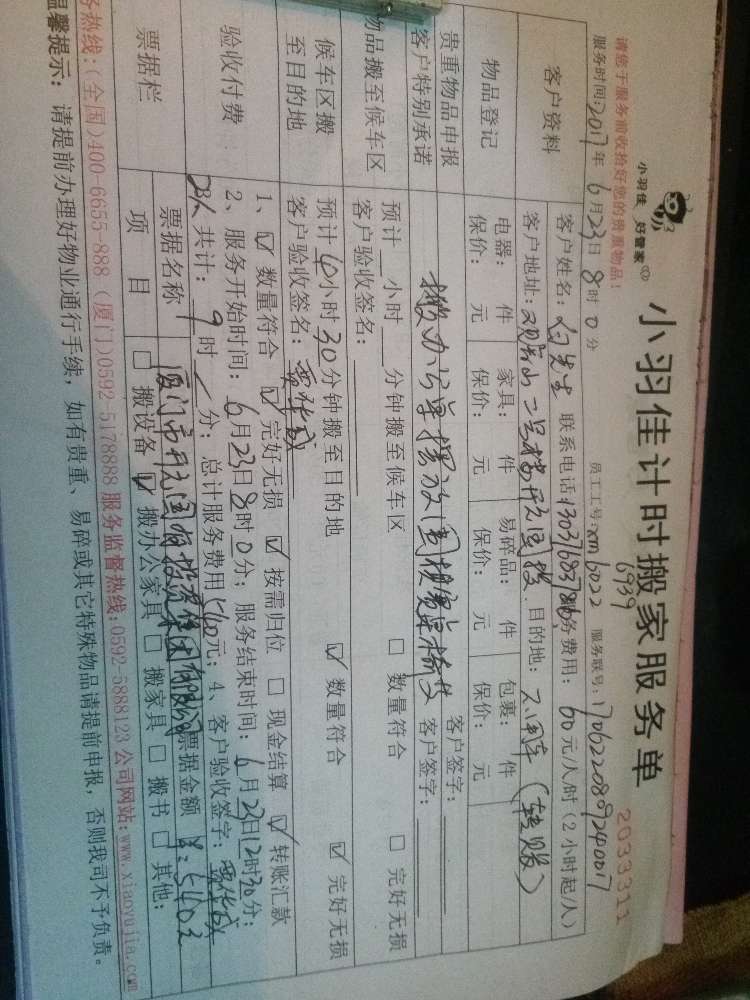 小羽佳 好管家
小羽佳计时搬家服务单
2033311
请您于服务前收拾好您的贵重物品!
6939
服务时间:2017年6月23日8时0分 员工工号:xm6022 服务联号:1706220809240017
客户资料
客户姓名: 先生 联系电话 务费用: 60元/人/时(2小时起/人)
客户地址:观音山二号楼 目的地: (转账)
物品登记
电器: 件 家具: 件 易碎品: 件 包裹: 件
保价: 元 保价: 元 保价: 元 保价: 元
贵重物品申报
客户特别承诺
搬办公单 客户签字:
客户签字:
物品搬至候车区
预计 小时 分钟搬至候车区 □ 数量符合 □ 完好无损
客户验收签名:
候车区搬
至目的地
预计 4小时30分钟搬至目的地 ☑ 数量符合 ☑ 完好无损
客户验收签名:
验收付费
1、☑ 数量符合 ☑ 完好无损 ☑ 按需归位 □ 现金结算 ☑ 转账汇款
2、服务开始时间:6月23日8时0分; 服务结束时间:6月23日12时30分;
2人 共计: 9 时 分; 总计服务费用 540元; 4、客户验收签字:
票据栏
票据名称 厦门市 有限公司 票据金额 ¥:540元
项 目 □ 搬设备 ☑ 搬办公家具 □ 搬家具 □ 搬书 □ 其他:
务热线:(全国)400-6655-888 (厦门)0592-5178888 服务监督热线:0592-5888123 公司网站:www.xiaoyujia.com
温馨提示: 请提前办理好物业通行手续, 如有贵重、易碎或其它特殊物品请提前申报, 否则我司不予负责。